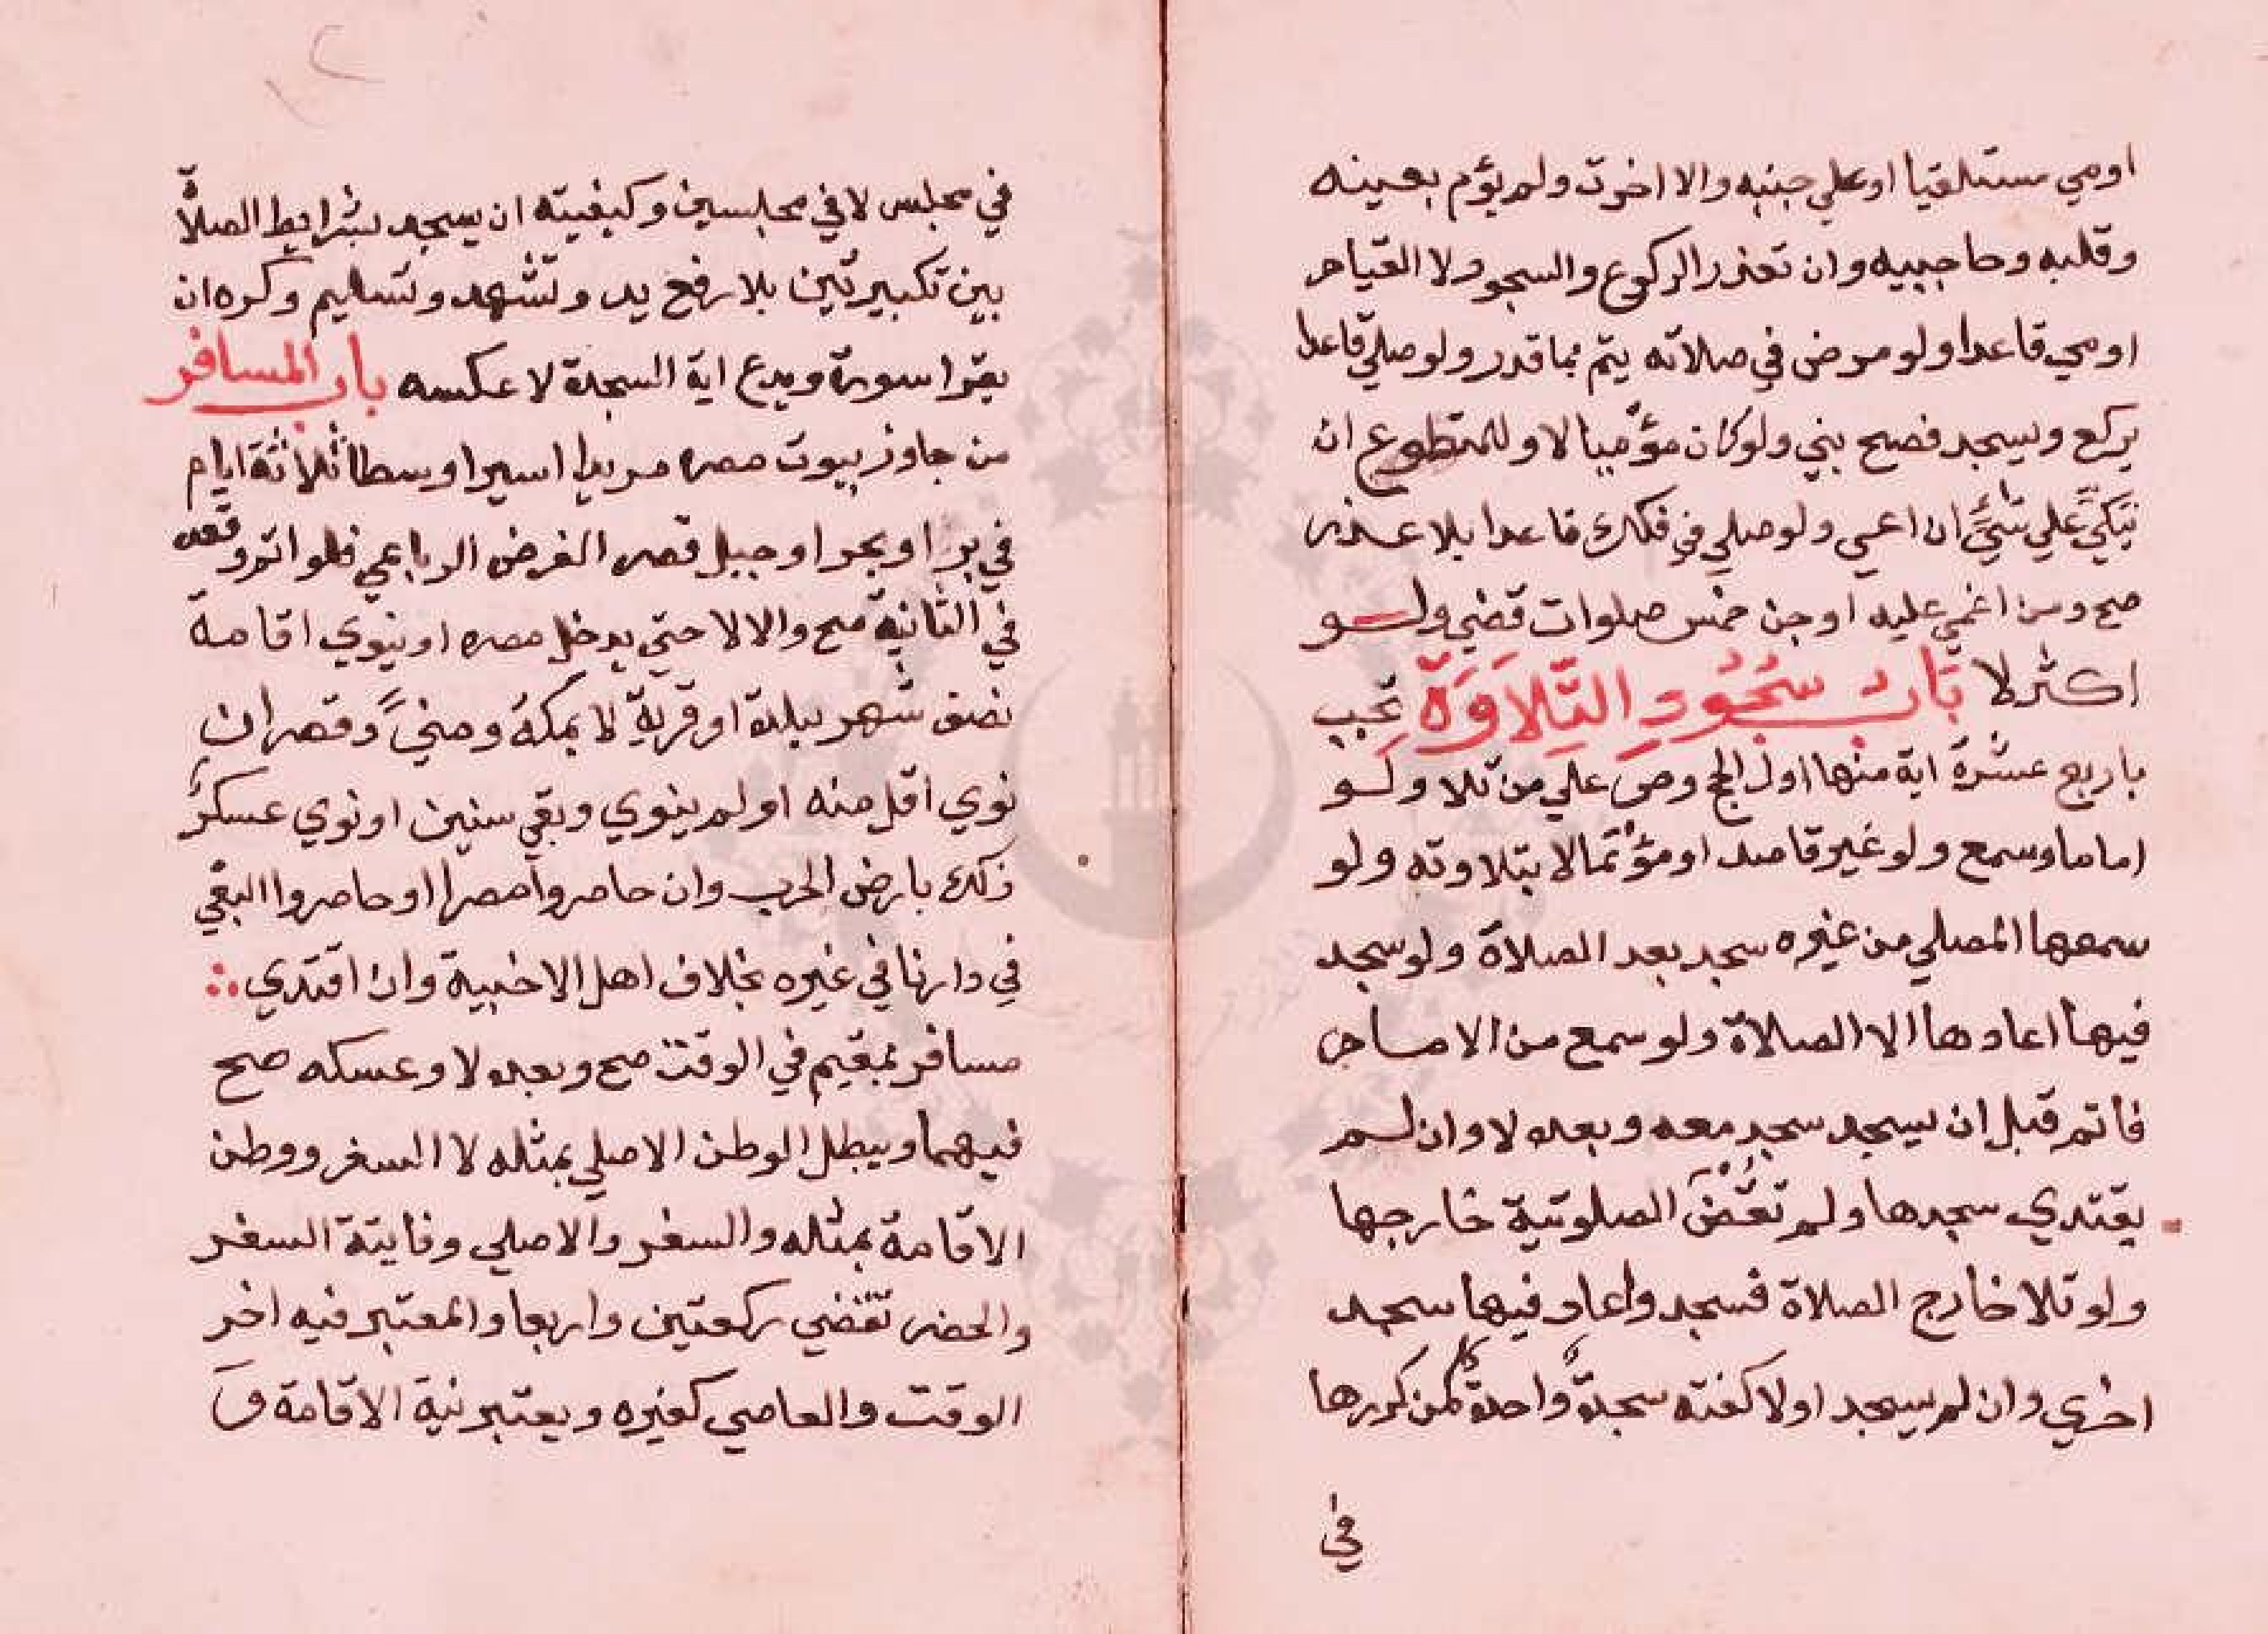 اومي مستلقيا او علي جنبه والا اخرت ولم يؤم بعينه
وقلبه وحاجبيه وان تعذر الركوع والسجود لا القيام
اومي قاعدا ولو مرض في صلاته يتم بما قدر ولو صلي قاعدا
يركع ويسجد فصح بني ولو كان مؤميا لا وللمتطوع ان
يتكئ علي شيئ ان اعيي ولو صلي في فلك قاعدا بلا عذر
صح ومن اغمي عليه او جن خمس صلوات قضي ولو
اكثر لا باب سُجُودِ التِّلَاوَةِ تجب
باربع عشرة اية منها اول الحج وص علي من تلا ولو
اماما وسمع ولو غير قاصد او مؤتما لا بتلاوته ولو
سمعها المصلي من غيره سجد بعد الصلاة ولو سجد
فيها اعادها لا الصلاة ولو سمع من الامام
فاتم قبل ان يسجد سجد معه وبعده لا وان لم
يقتدي سجدها ولم تقض الصلوتية خارجها
ولو تلا خارج الصلاة فسجد واعاد فيها سجد
اخري وان لم يسجد اولا كفته سجدة واحدة كمن كررها
في
في مجلس لا في مجلسين وكيفيته ان يسجد بشرايط الصلاة
بين تكبيرتين بلا رفع يد وتشهد وتسليم وكره ان
يقرا سورة ويدع اية السجدة لا عكسه باب المسافر
من جاوز بيوت مصره مريدا سيرا وسطا ثلاثة ايام
في بر او بحر او جبل قصر الفرض الرباعي فلو اتم وقعد
في الثانية صح والا لا حتي يدخل مصره او ينوي اقامة
نصف شهر ببلدة او قرية لا بمكة ومني وقصر ان
نوي اقل منه او لم ينوي وبقي سنين او نوي عسكر
ذلك بارض الحرب وان حاصروا مصرا او حاصروا البغي
في دارنا في غيره بخلاف اهل الاخبية وان اقتدي
مسافر بمقيم في الوقت صح وبعده لا وعسكه صح
فيهما ويبطل الوطن الاصلي بمثله لا السفر ووطن
الاقامة بمثله والسفر والاصلي وفايتة السفر
والحضر تقضي ركعتين واربعا والمعتبر فيه اخر
الوقت والعاصي كغيره ويعتبر نية الاقامة و